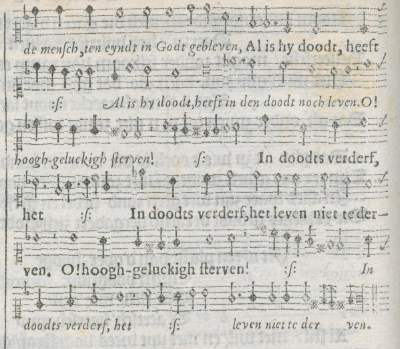 de mensch, ten eyndt in Godt gebleven, Al is hy doodt, heeft
:ſ: Al is hy doodt, heeft in den doodt noch leven. O!
hoogh-geluckigh ſterven! :ſ: In doodts verderf,
het :ſ: In doodts verderf, het leven niet te der-
ven. O! hoogh-geluckigh ſterven! :ſ: In
doodts verderf, het :ſ: leven niet te der ven.